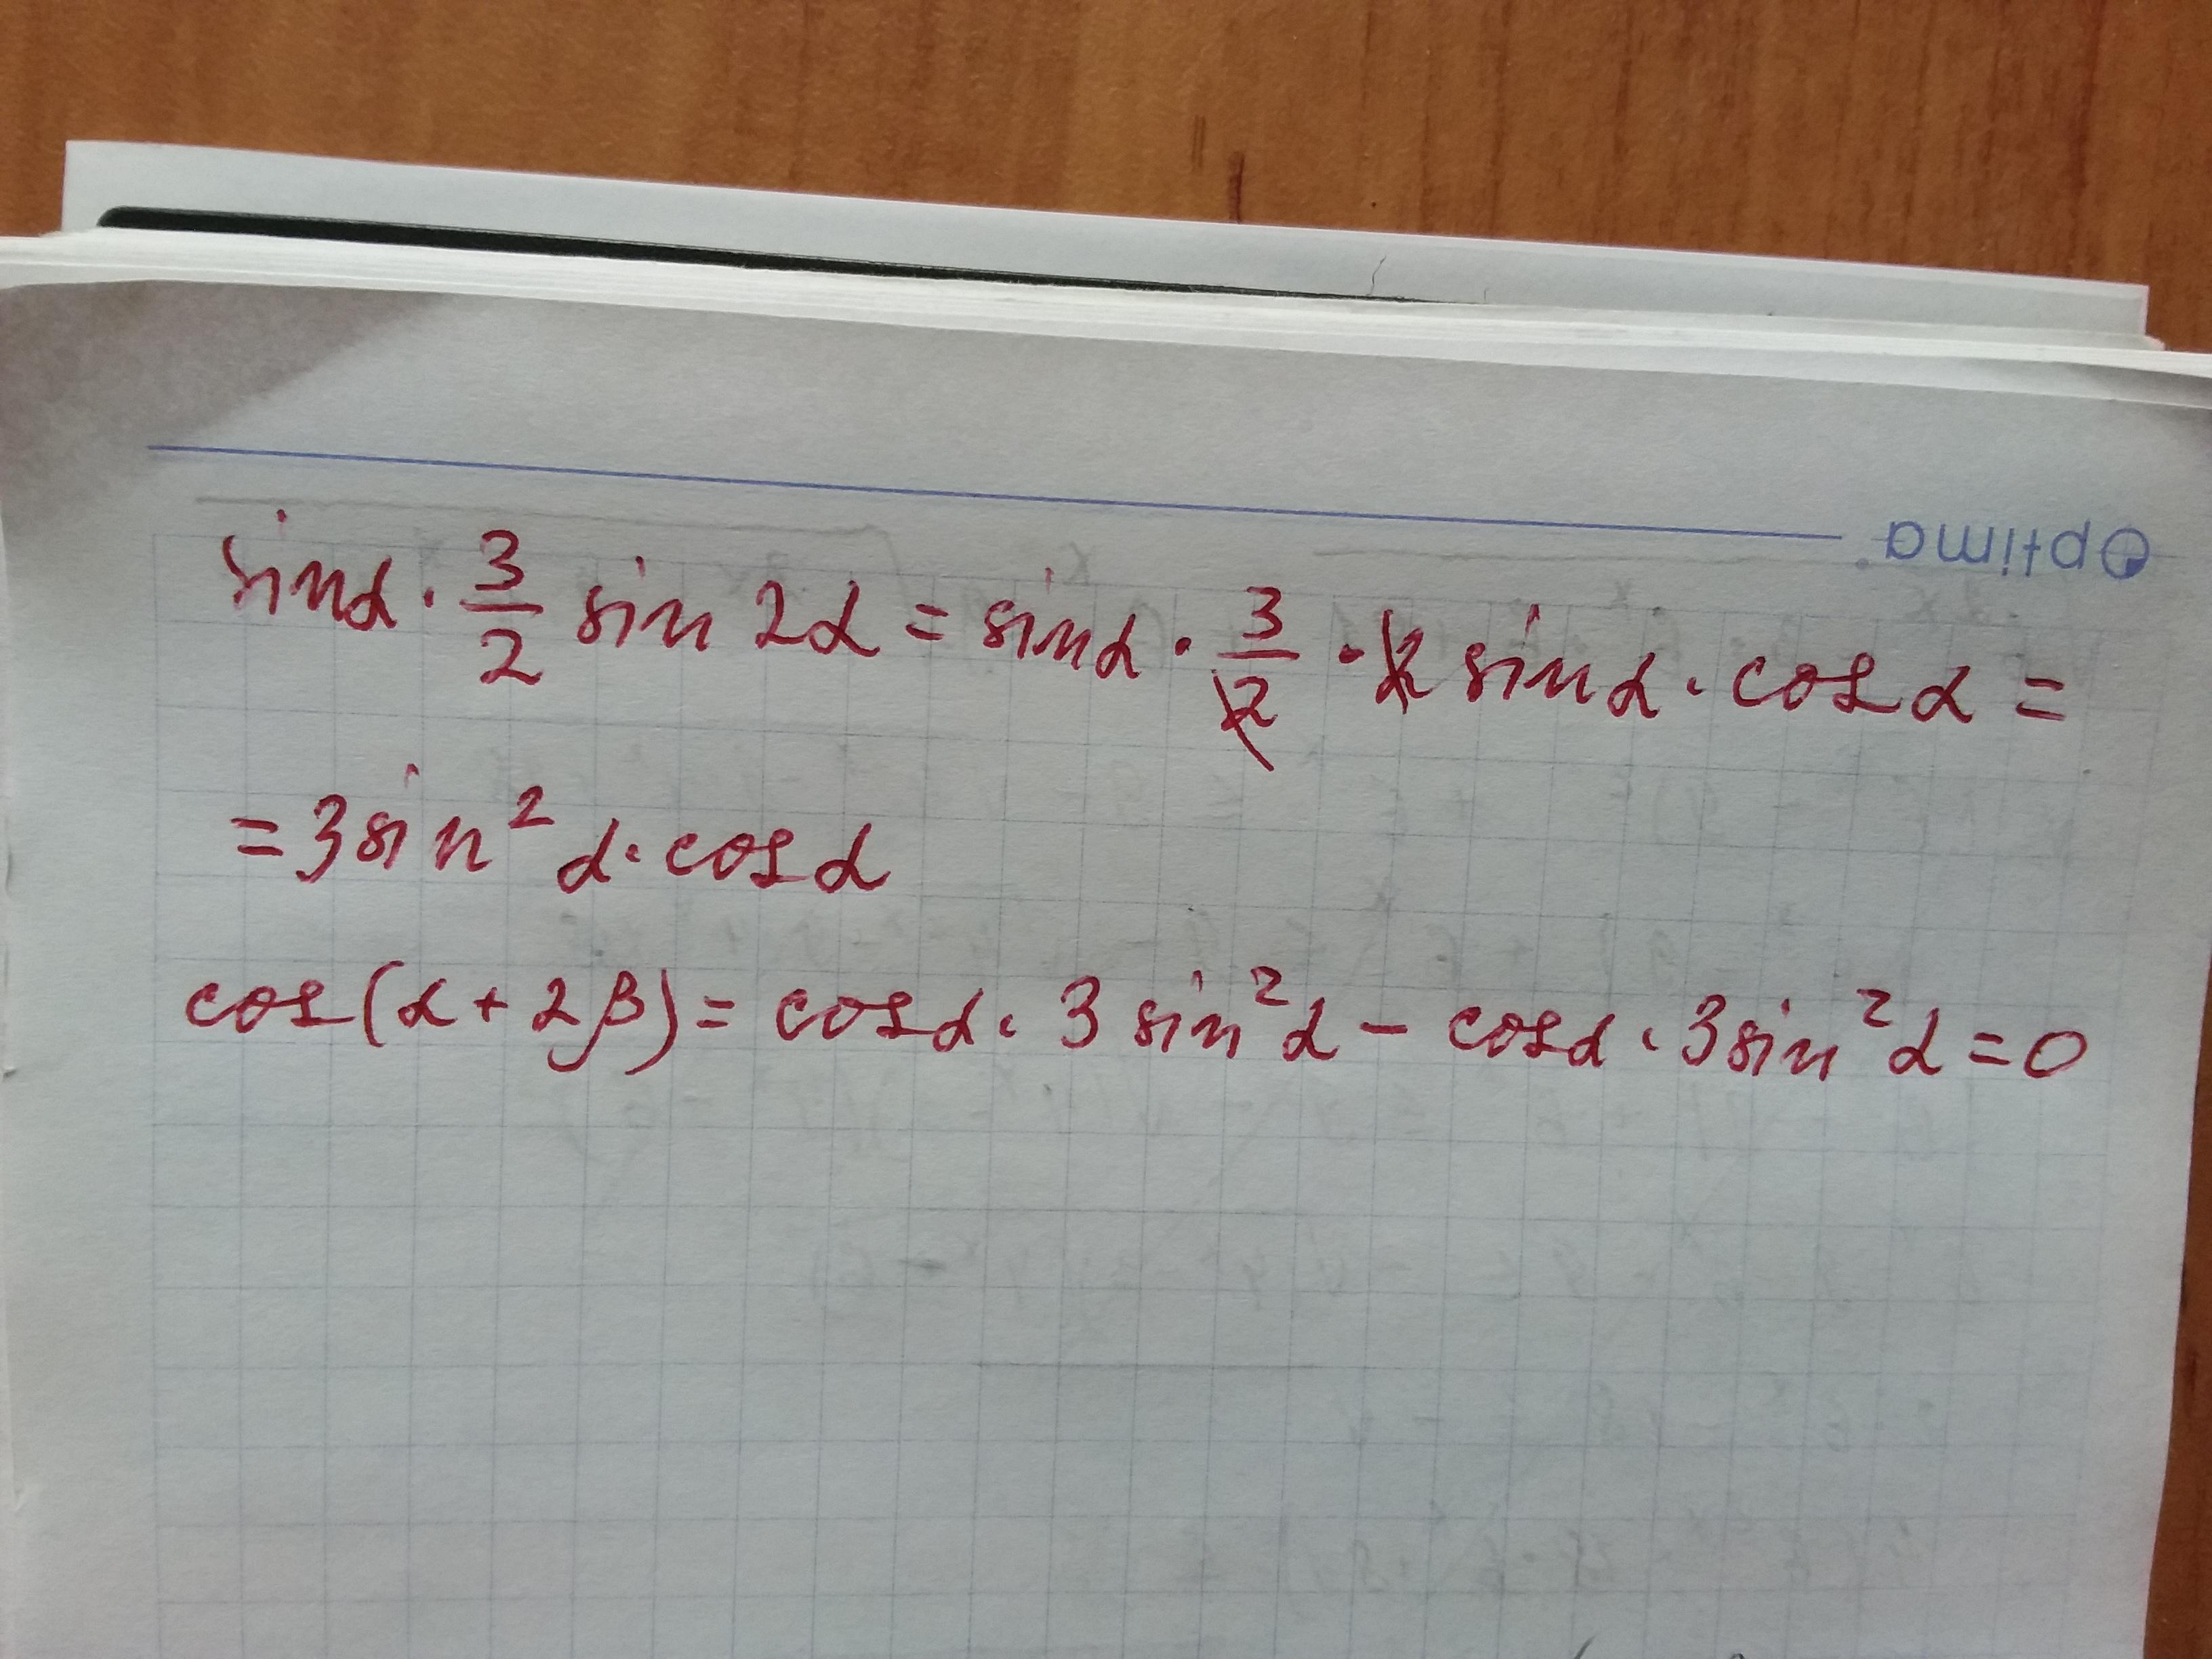 Optima
sinα · 3/2 sin 2α = sinα · 3/2 · 2 sinα · cos α =
= 3 sin² α · cos α
cos(α + 2β) = cosα · 3 sin²α − cosα · 3 sin²α = 0